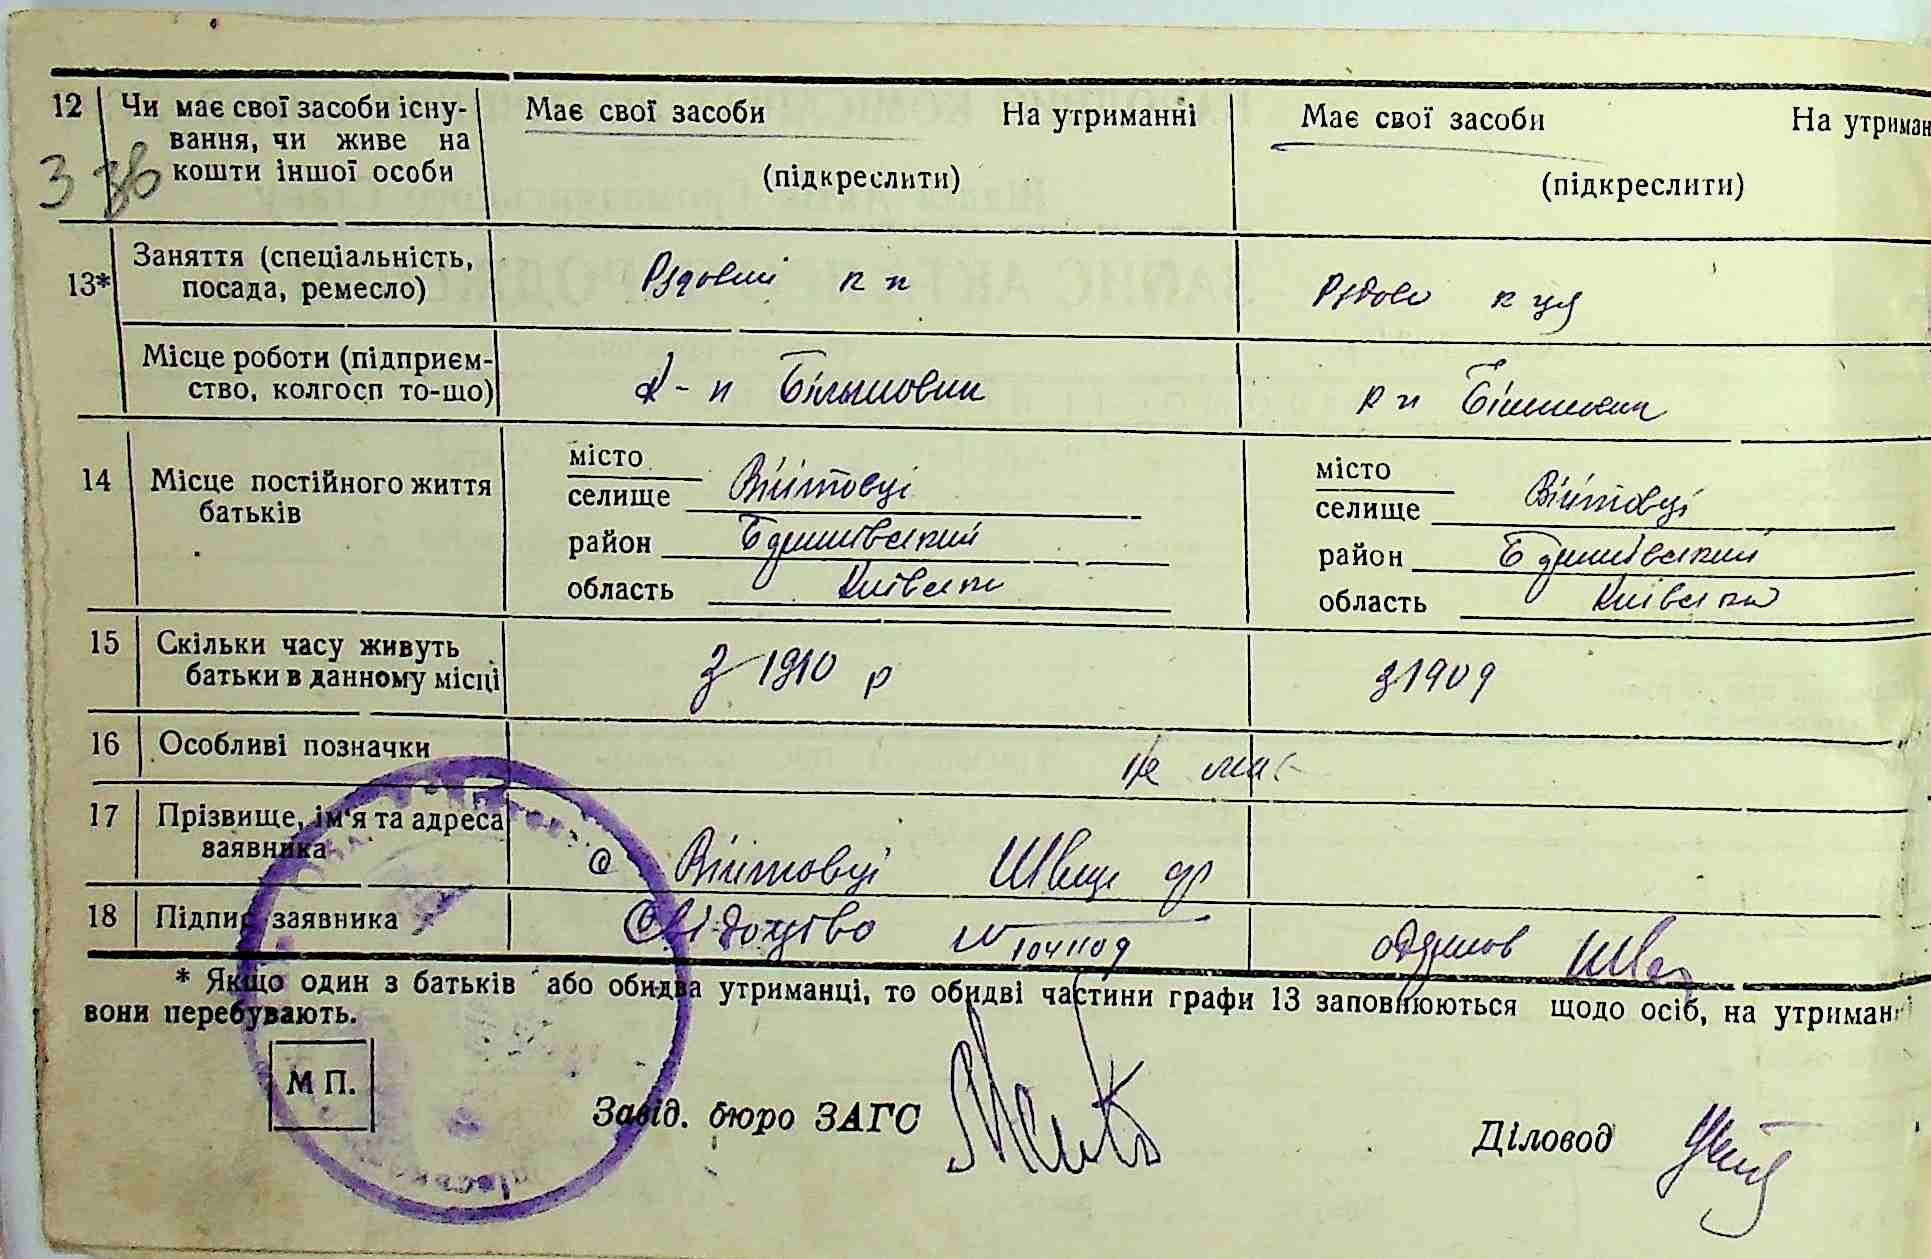 12 Чи має свої засоби існу- Має свої засоби На утриманні Має свої засоби На утриман
вання, чи живе на
кошти іншої особи (підкреслити) (підкреслити)
З зв
13* Заняття (спеціальність, Рядовий к п
посада, ремесло) Рядова к ця
Місце роботи (підприєм-
ство, колгосп то-що) к-п Більшовик к п Більшовик
14 Місце постійного життя батьків
місто
селище Війтовці
район
область Київська
місто
селище Війтовці
район
область Київська
15 Скільки часу живуть
батьки в данному місці з 1910 р з 1909
16 Особливі позначки не має
17 Прізвище, ім'я та адреса
заявника с Війтовці Швець
18 Підпис заявника Свідоцтво № 104109 одержав Шве
* Якщо один з батьків або обидва утриманці, то обидві частини графи 13 заповнюються щодо осіб, на утриманні
вони перебувають.
М П.
Завід. бюро ЗАГС
Діловод